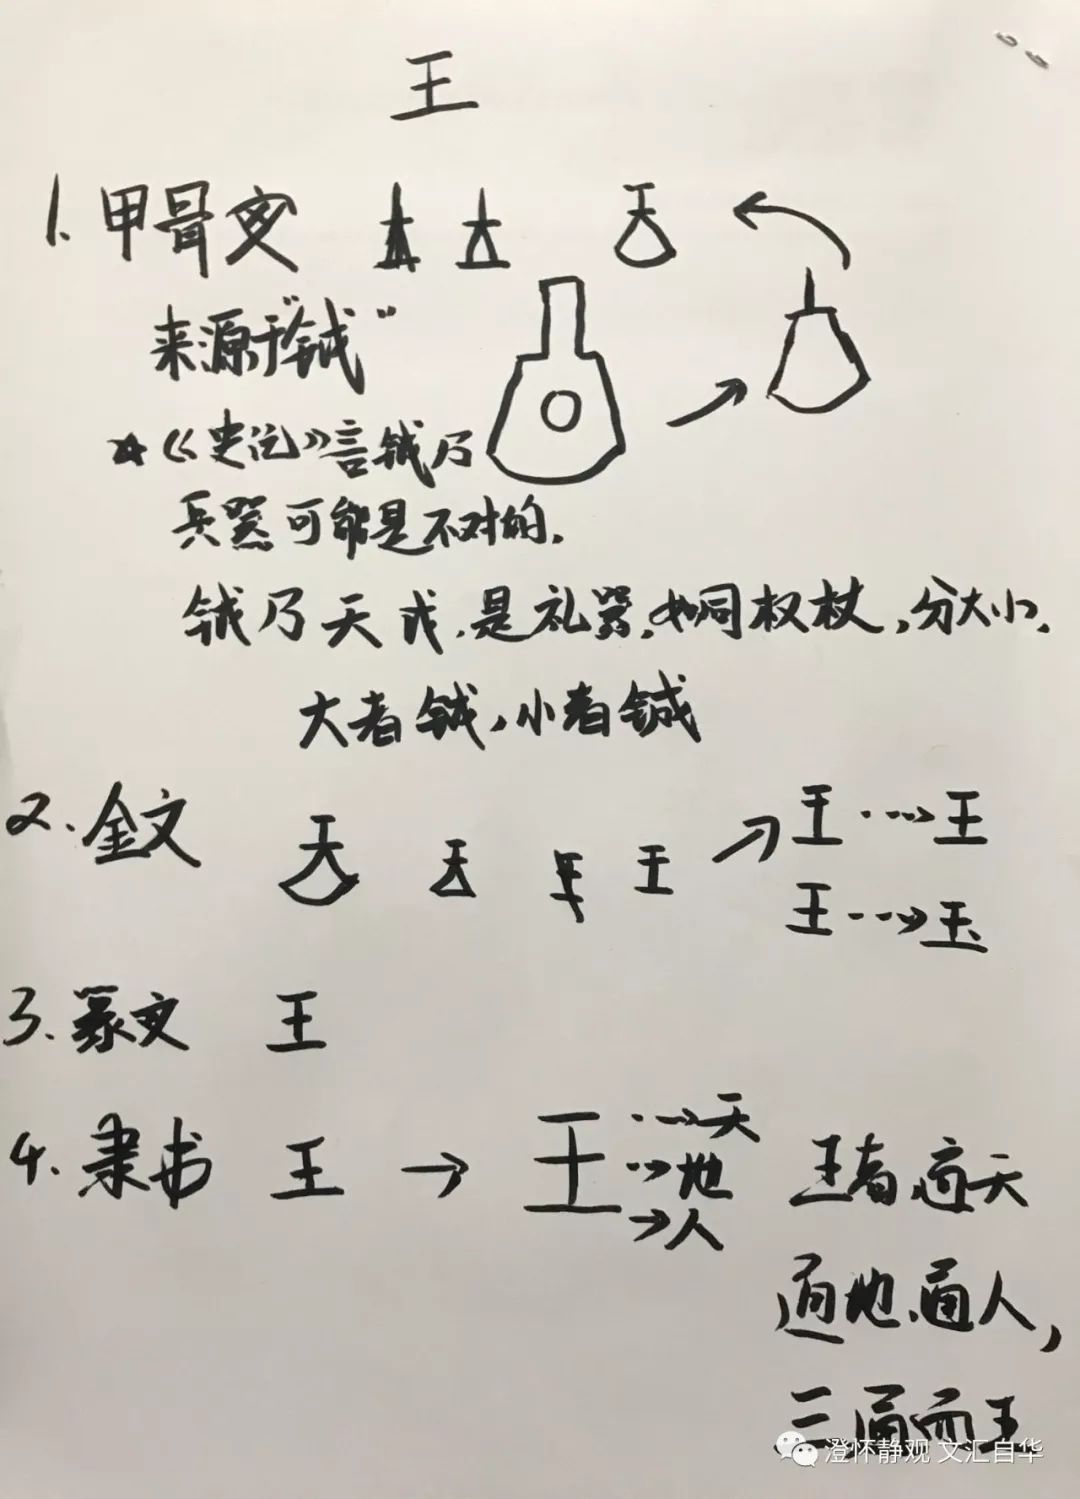 王
1. 甲骨文
来源于"钺"
★《史记》言钺乃
兵器可能是不对的.
钺乃天戉,是礼器,如同权杖,分大小.
大者钺,小者鏚
2. 金文 王 王 ⋯→ 王
王 ⋯→ 玉
3. 篆文 王
4. 隶书 王 → 王 ⋯→ 天
⋯→ 地
→ 人
王者,通天
通地、通人,
三通而王
澄怀静观 文汇自华